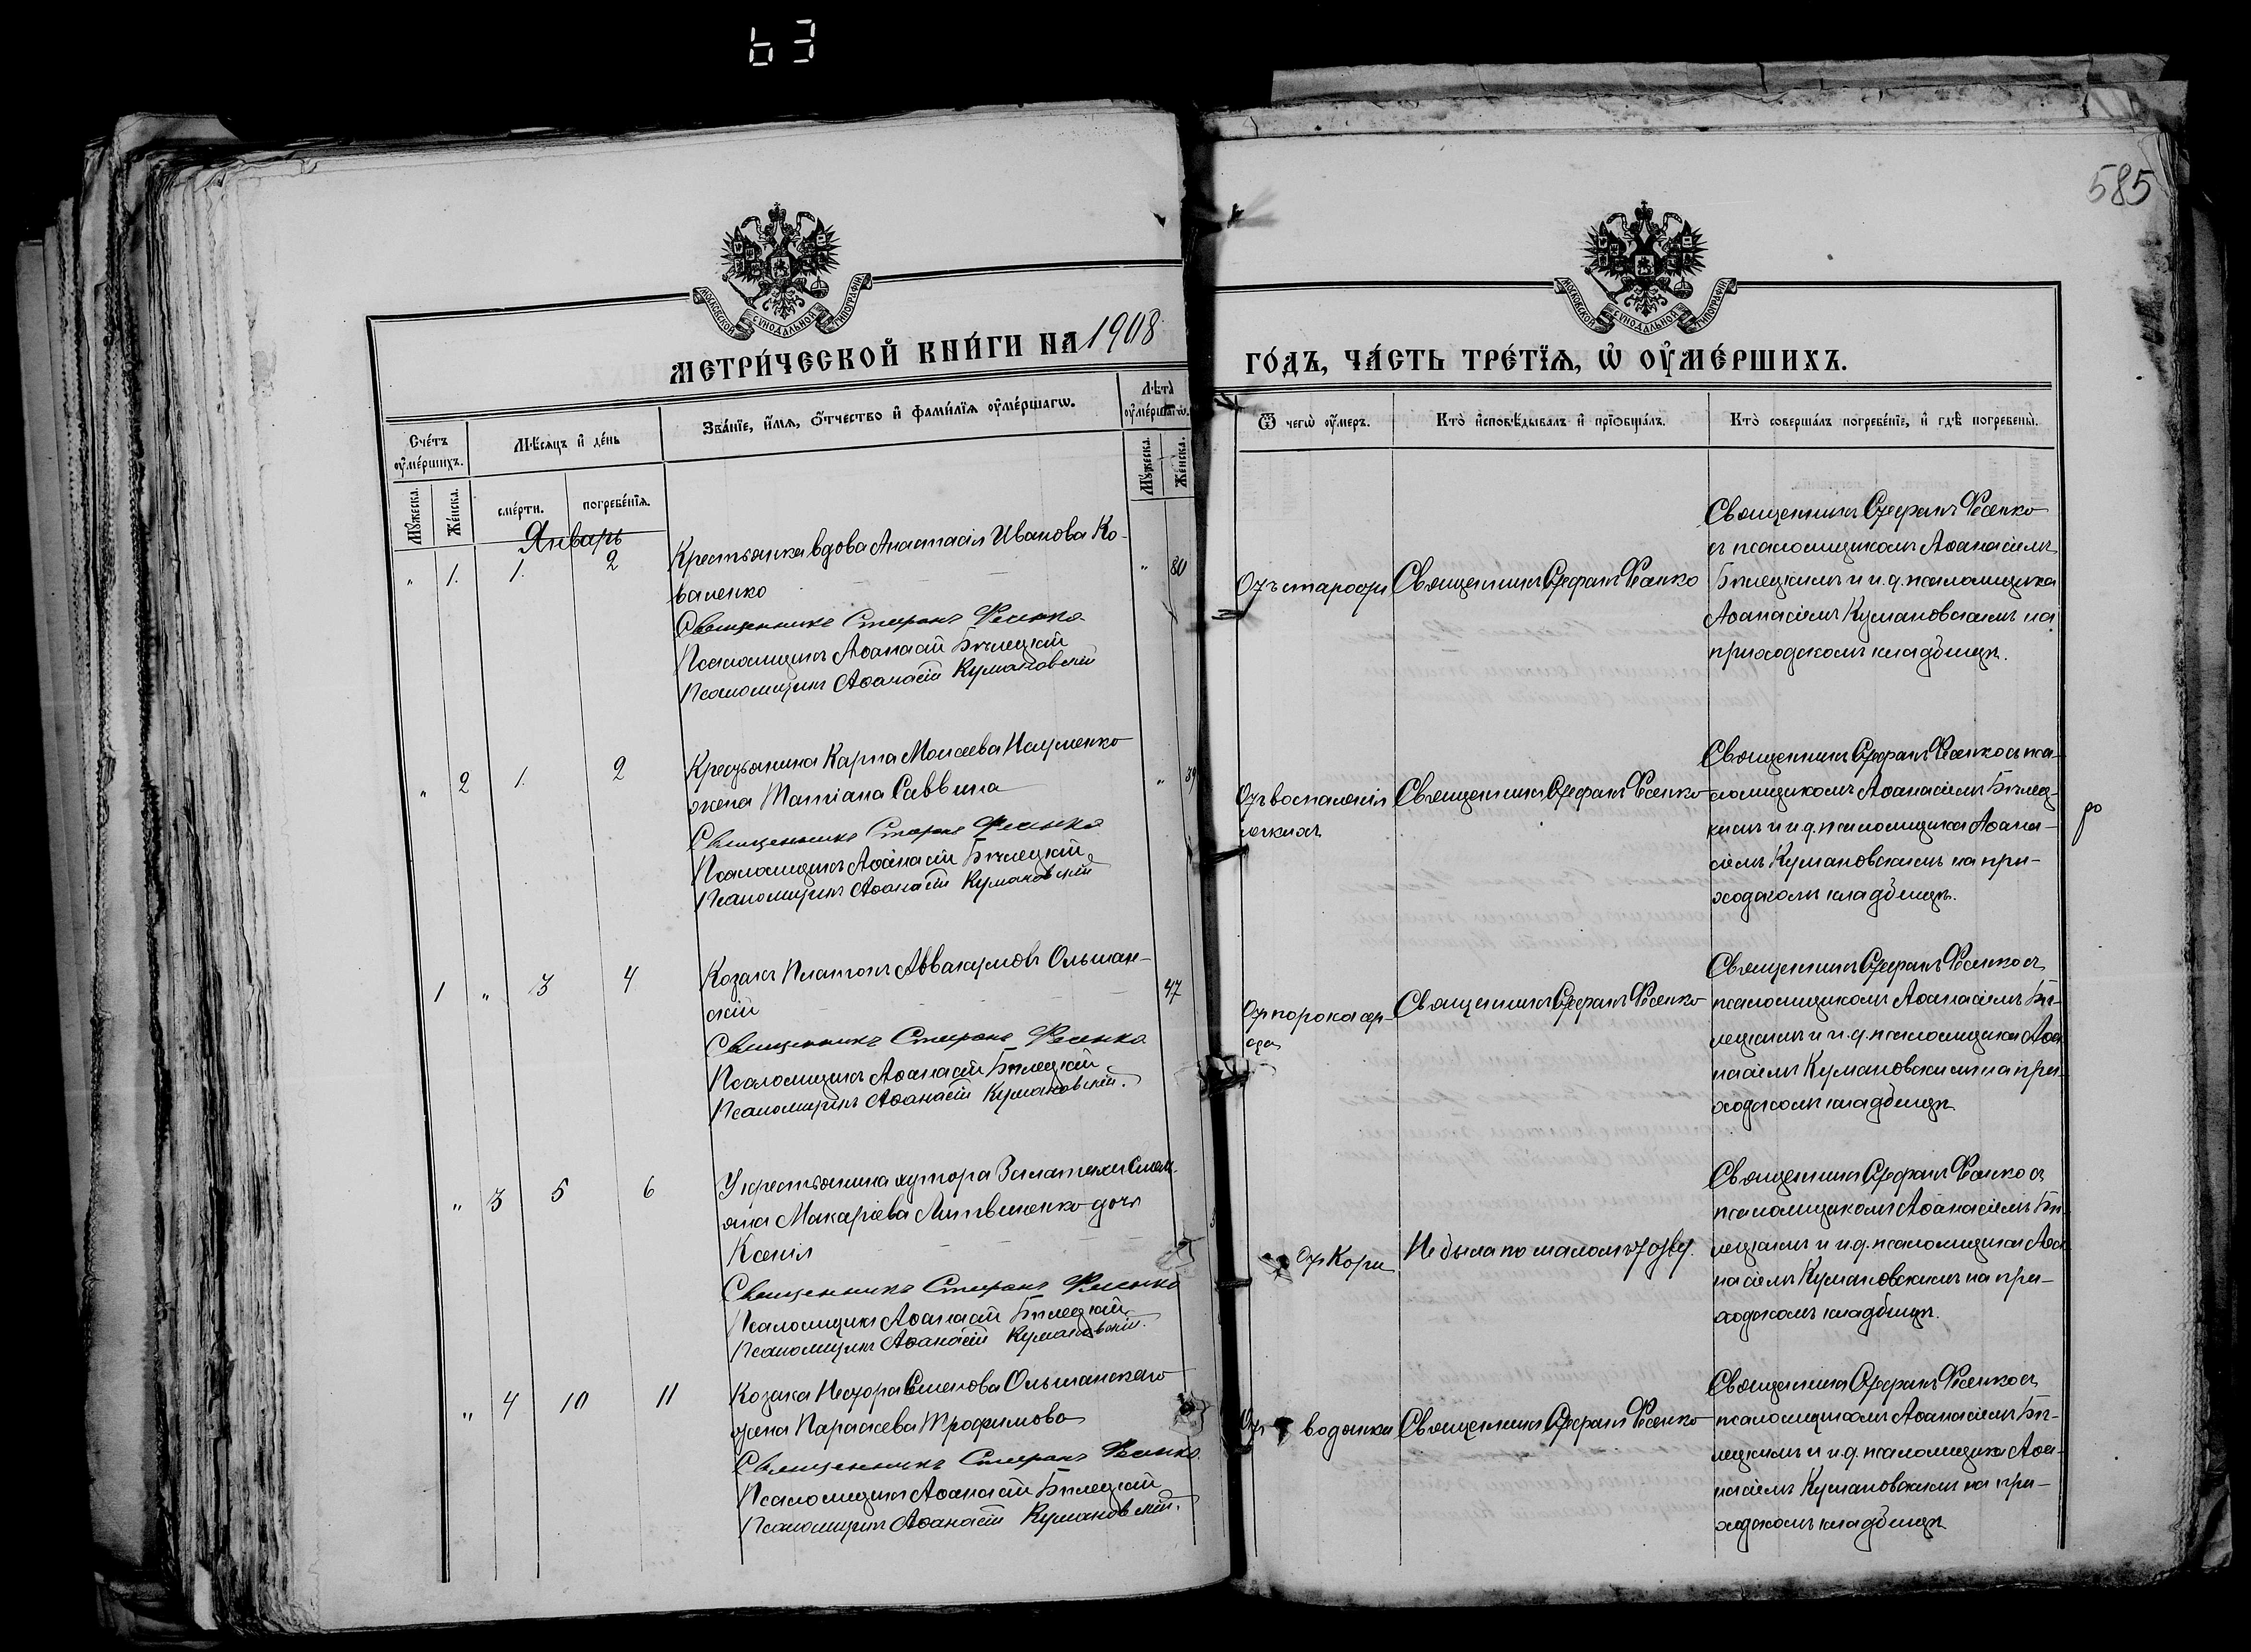 63
585
МОСКОВСКОЙ СѴНОДАЛЬНОЙ ТИПОГРАФІИ
МОСКОВСКОЙ СѴНОДАЛЬНОЙ ТИПОГРАФІИ
МЕТРИ́ЧЕСКОЙ КНИ́ГИ НА 1908
ГО́ДЪ, ЧА́СТЬ ТРЕ́ТЇѦ, Ѡ҆ ОУ҆МЕ́РШИХЪ.
Сче́тъ оу҆ме́ршихъ.
Мѣ́сяцъ и҆ де́нь
Зва́нїе, и҆́мѧ, ѻ҆́тчество и҆ фами́лїѧ оу҆ме́ршагѡ.
Лѣ́та оу҆ме́ршагѡ.
Ѿ чегѡ̀ оу҆́меръ.
Кто̀ и҆сповѣ́дывалъ и҆ прїѡбща́лъ.
Кто̀ соверша́лъ погребе́нїе, и҆ гдѣ̀ погребены̀.
Мꙋ́жеска.
Же́нска.
сме́рти.
погребе́нїѧ.
Мꙋ́жеска.
Же́нска.
Январь
" 1. 1. 2
Крестьянка вдова Анастасія Иванова Ко-
валенко
" 80
Священникъ Стефанъ Фесенко
Псаломщикъ Аѳанасій Бѣлецкій
Псаломщикъ Аѳанасій Кумановскій
Отъ старости
Священникъ Стефанъ Фесенко
Священникъ Стефанъ Фесенко
съ псаломщикомъ Аѳанасіемъ
Бѣлецкимъ и и.д. псаломщика
Аѳанасіемъ Кумановскимъ на
приходскомъ кладбищѣ.
" 2 1. 2
Крестьянина Карпа Моисеева Науменко
жена Татіана Саввина
" 39
Священникъ Стефанъ Фесенко
Псаломщикъ Аѳанасій Бѣлецкій
Псаломщикъ Аѳанасій Кумановскій
Отъ воспаленія
легкихъ
Священникъ Стефанъ Фесенко
Священникъ Стефанъ Фесенко съ пса-
ломщикомъ Аѳанасіемъ Бѣлец-
кимъ и и.д. псаломщика Аѳана-
сіемъ Кумановскимъ на при-
ходскомъ кладбищѣ.
1 " 3 4
Козакъ Платонъ Аввакумовъ Ольшан-
скій
47
Священникъ Стефанъ Фесенко
Псаломщикъ Аѳанасій Бѣлецкій
Псаломщикъ Аѳанасій Кумановскій.
Отъ порока сер-
дца
Священникъ Стефанъ Фесенко
Священникъ Стефанъ Фесенко съ
псаломщикомъ Аѳанасіемъ Бѣ-
лецкимъ и и.д. псаломщика Аѳа-
насіемъ Кумановскимъ на при-
ходскомъ кладбищѣ
" 3 5 6
У крестьянина хутора
Макаріева Литвиненко дочь
Ксенія
Священникъ Стефанъ Фесенко
Псаломщикъ Аѳанасій Бѣлецкій
Псаломщикъ Аѳанасій Кумановскій.
Отъ Кори
Не была по малолѣтству.
Священникъ Стефанъ Фесенко съ
псаломщикомъ Аѳанасіемъ Бѣ-
лецкимъ и и.д. псаломщика Аѳа-
насіемъ Кумановскимъ на при-
ходскомъ кладбищѣ.
" 4 10 11
Козака Нестора Семенова Ольшанскаго
жена Параскева Трофимова
Священникъ Стефанъ Фесенко.
Псаломщикъ Аѳанасій Бѣлецкій
Псаломщикъ Аѳанасій Кумановскій.
Отъ водянки
Священникъ Стефанъ Фесенко
Священникъ Стефанъ Фесенко съ
псаломщикомъ Аѳанасіемъ Бѣ-
лецкимъ и и.д. псаломщика Аѳа-
насіемъ Кумановскимъ на при-
ходскомъ кладбищѣ